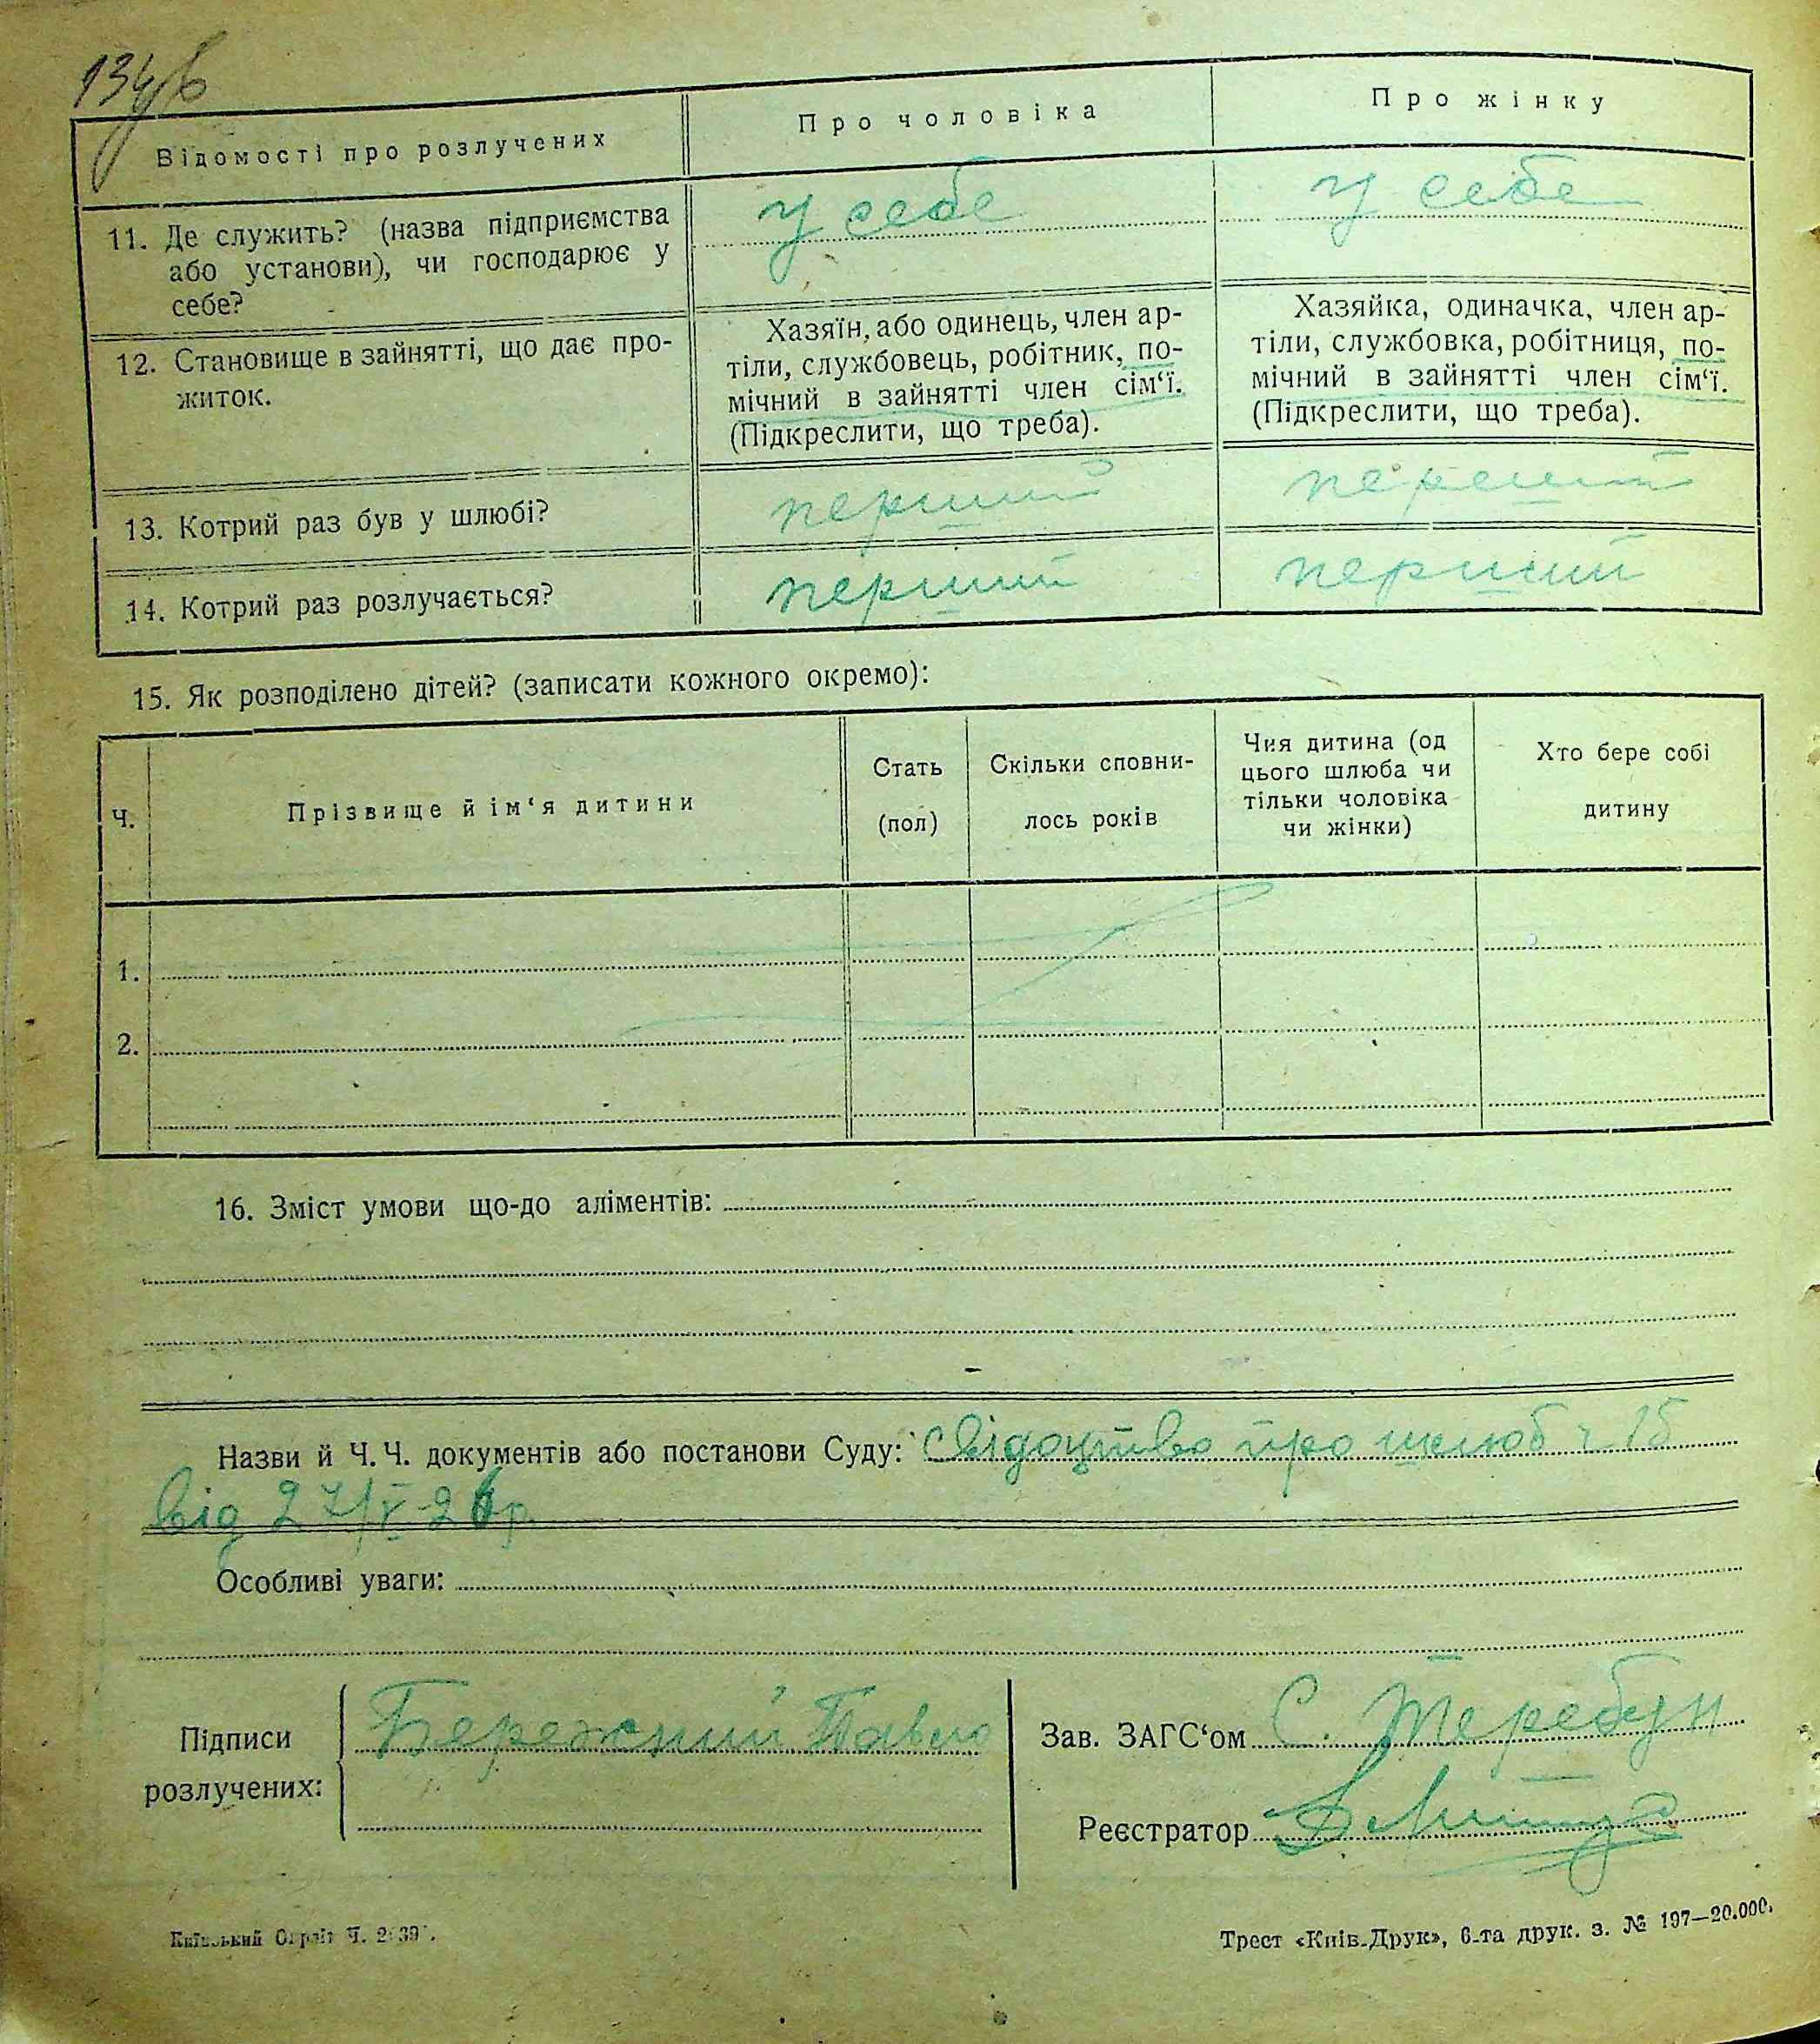 Відомості про розлучених
Про чоловіка
Про жінку
11. Де служить? (назва підприємства
або установи), чи господарює у
себе?
у себе
у себе
12. Становище в зайнятті, що дає про-
житок.
Хазяїн, або одинець, член ар-
тіли, службовець, робітник, по-
мічний в зайнятті член сім‘ї.
(Підкреслити, що треба).
Хазяйка, одиначка, член ар-
тіли, службовка, робітниця, по-
мічний в зайнятті член сім‘ї.
(Підкреслити, що треба).
13. Котрий раз був у шлюбі?
перший
перший
14. Котрий раз розлучається?
перший
перший
15. Як розподілено дітей? (записати кожного окремо):
Ч.
Прізвище й ім‘я дитини
Стать
(пол)
Скільки сповни-
лось років
Чия дитина (од
цього шлюба чи
тільки чоловіка
чи жінки)
Хто бере собі
дитину
1.
2.
16. Зміст умови що-до аліментів:
Назви й Ч.Ч. документів або постанови Суду: Свідоцтво про шлюб ч. 15
від 27/V-26р.
Особливі уваги:
Підписи
розлучених:
Бережний Павло
Зав. ЗАГС‘ом С. Теребун
Реєстратор
Трест «Київ-Друк», 6-та друк. з. № 197—20.000.